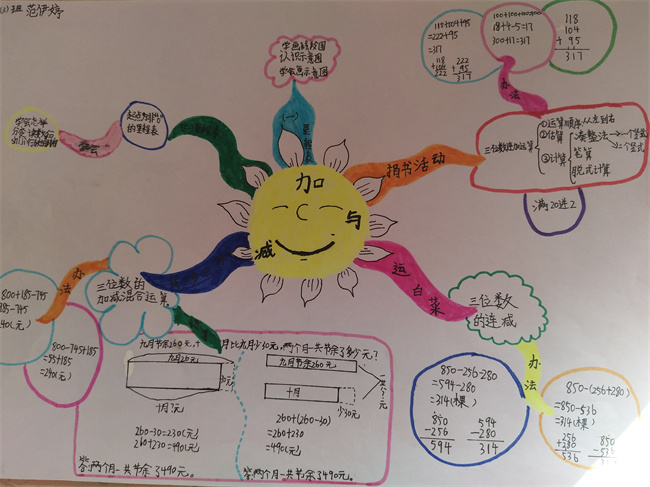 班 范伊婷
学画线段图
认识示意图
学会画示意图
(一)
里程表
起点为"0"
的里程表
加
与
减
捐书活动
三位数连加运算
①运算顺序从左到右
②估算
③计算
凑整法
一个竖式
二个竖式
笔算
脱式计算
满20进2
办法
118+104+95
=222+95
=317
118
+104
222
222
+ 95
317
100+100+100=300
18+4-5=17
300+17=317
118
104
+ 95
317
运白菜
三位数
的连减
办法
850-256-280
=594-280
=314(棵)
850
-256
594
594
-280
314
850-(256+280)
=850-536
=314(棵)
256
+280
536
850
-536
三位数的
加减混合运算
办法
800+185-745
800-745+185
=55+185
=240(元)
九月节余260元,十月比九月少30元,两个月一共节余了多少元?
十月?元
260-30=230(元)
260+230=490(元)
答:两个月一共节余了490元。
九月节余260元
十月
少30元
260+(260-30)
=260+230
=490(元)
答:两个月一共节余了490元。